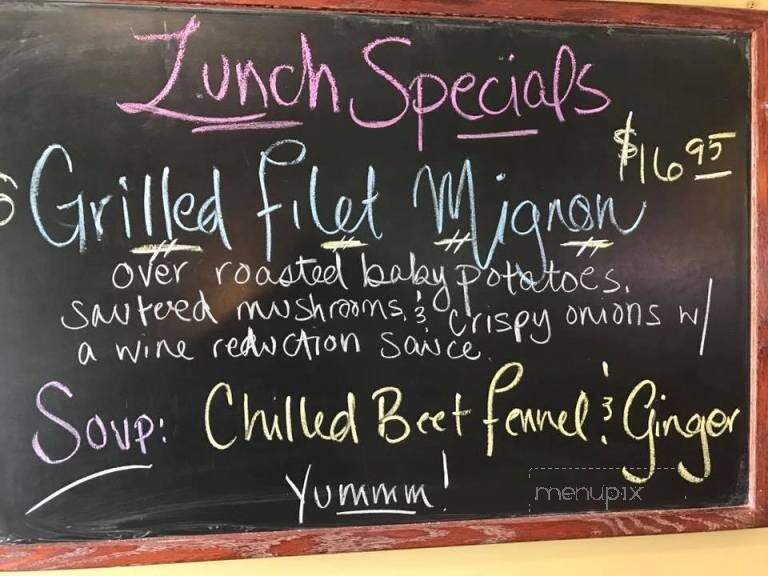 Lunch Specials
$16 95
Grilled filet Mignon
over roasted baby potatoes,
sauteed mushrooms, & crispy onions w/
a wine reduction sauce.
Soup: Chilled Beet fennel & Ginger
Yummm!
menupix